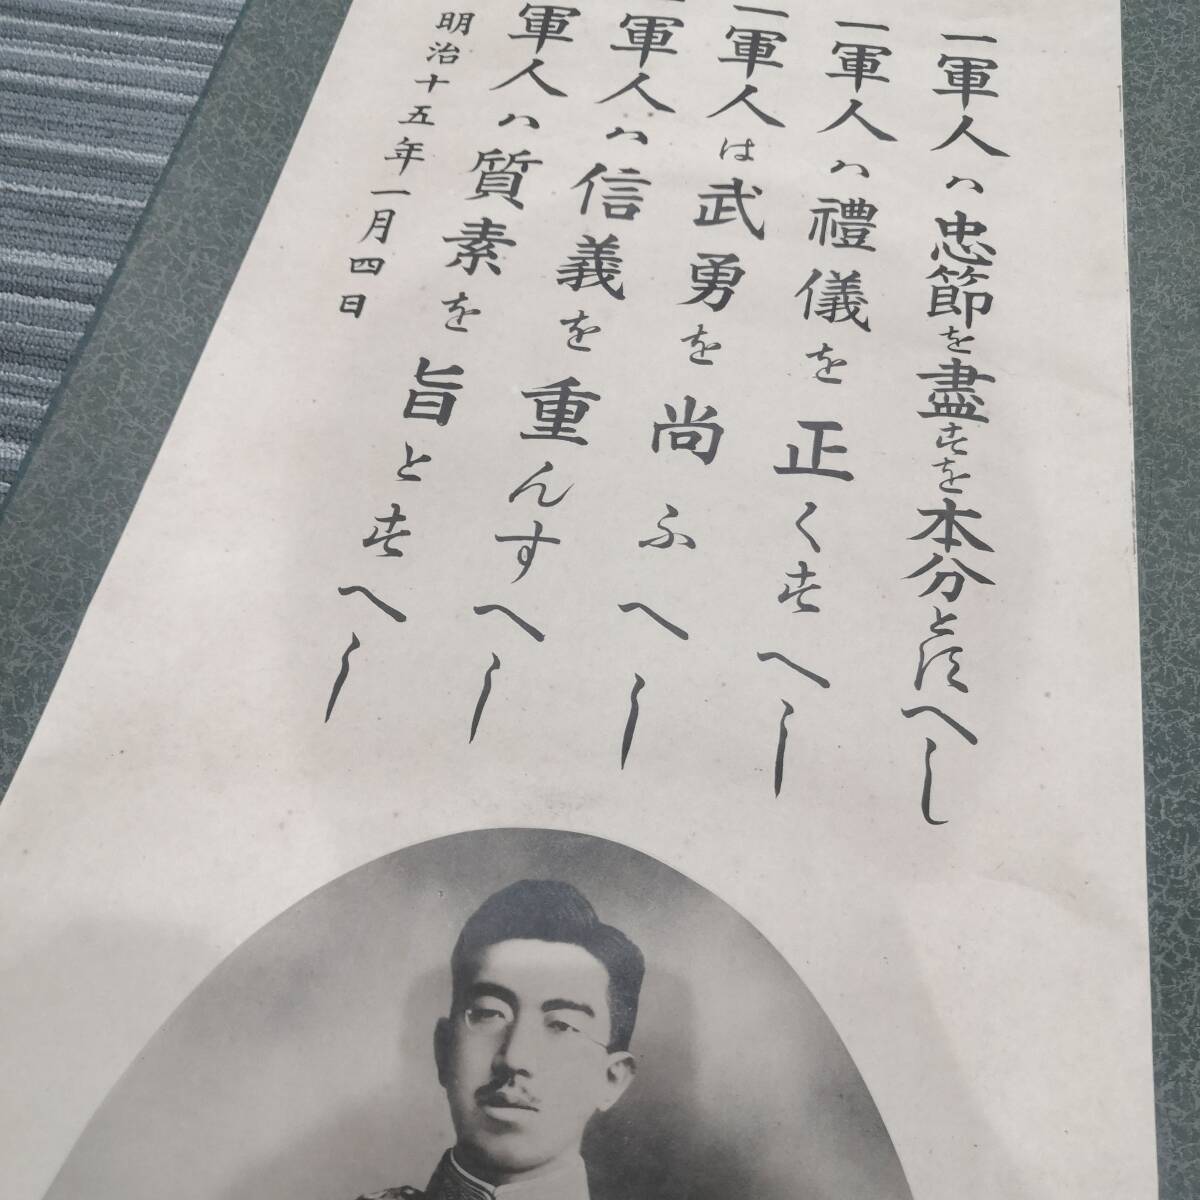 一軍人ハ忠節を盡すを本分とすへし
一軍人ハ禮儀を正くすへし
一軍人は武勇を尚ふへし
一軍人ハ信義を重んすへし
軍人ハ質素を旨とすへし
明治十五年一月四日